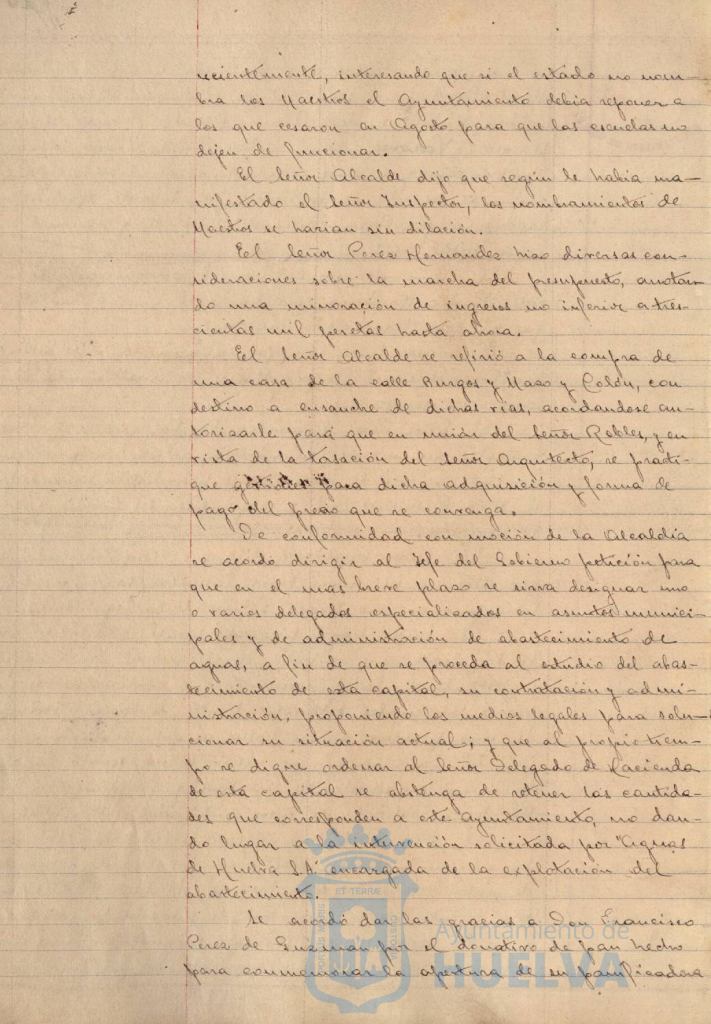 recientemente, interesando que si el estado no nom-
bra los Maestros el Ayuntamiento debia reponer a
los que cesaron en Agosto para que las escuelas no
dejen de funcionar.
El Señor Alcalde dijo que según le habia ma-
nifestado el Señor Inspector, los nombramientos de
Maestros se harian sin dilación.
El Señor Perez Hernandez hizo diversas con-
sideraciones sobre la marcha del presupuesto, anotan-
do una minoración de ingresos no inferior a tres-
cientas mil pesetas hasta ahora.
El Señor Alcalde se refirió a la compra de
una casa de la calle Burgos y Mazo y Colón, con
destino a ensanche de dichas vias, acordandose au-
torizarle para que en unión del Señor Robles, y en
vista de la tasación del Señor Arquitecto, se practi-
que gestiones para dicha adquisición y forma de
pago del precio que se convenga.
De conformidad con moción de la Alcaldia
se acordo dirigir al Jefe del Gobierno petición para
que en el mas breve plazo se sirva designar uno
o varios delegados especializados en asuntos munici-
pales y de administración de abastecimiento de
aguas, a fin de que se proceda al estudio del abas-
tecimiento de esta capital, su contratación y admi-
nistración, proponiendo los medios legales para solu-
cionar su situación actual; y que al propio tiem-
po se digne ordenar al Señor Delegado de Hacienda
de esta capital se abstenga de retener las cantida-
des que corresponden a este Ayuntamiento, no dan-
do lugar a la intervención solicitada por "Aguas
de Huelva S.A." encargada de la explotación del
abastecimiento.
Se acordó dar las gracias a Don Francisco
Perez de Guzman por el donativo de pan hecho
para conmemorar la apertura de su panificadora
ET TERRÆ
Ayuntamiento de
HUELVA